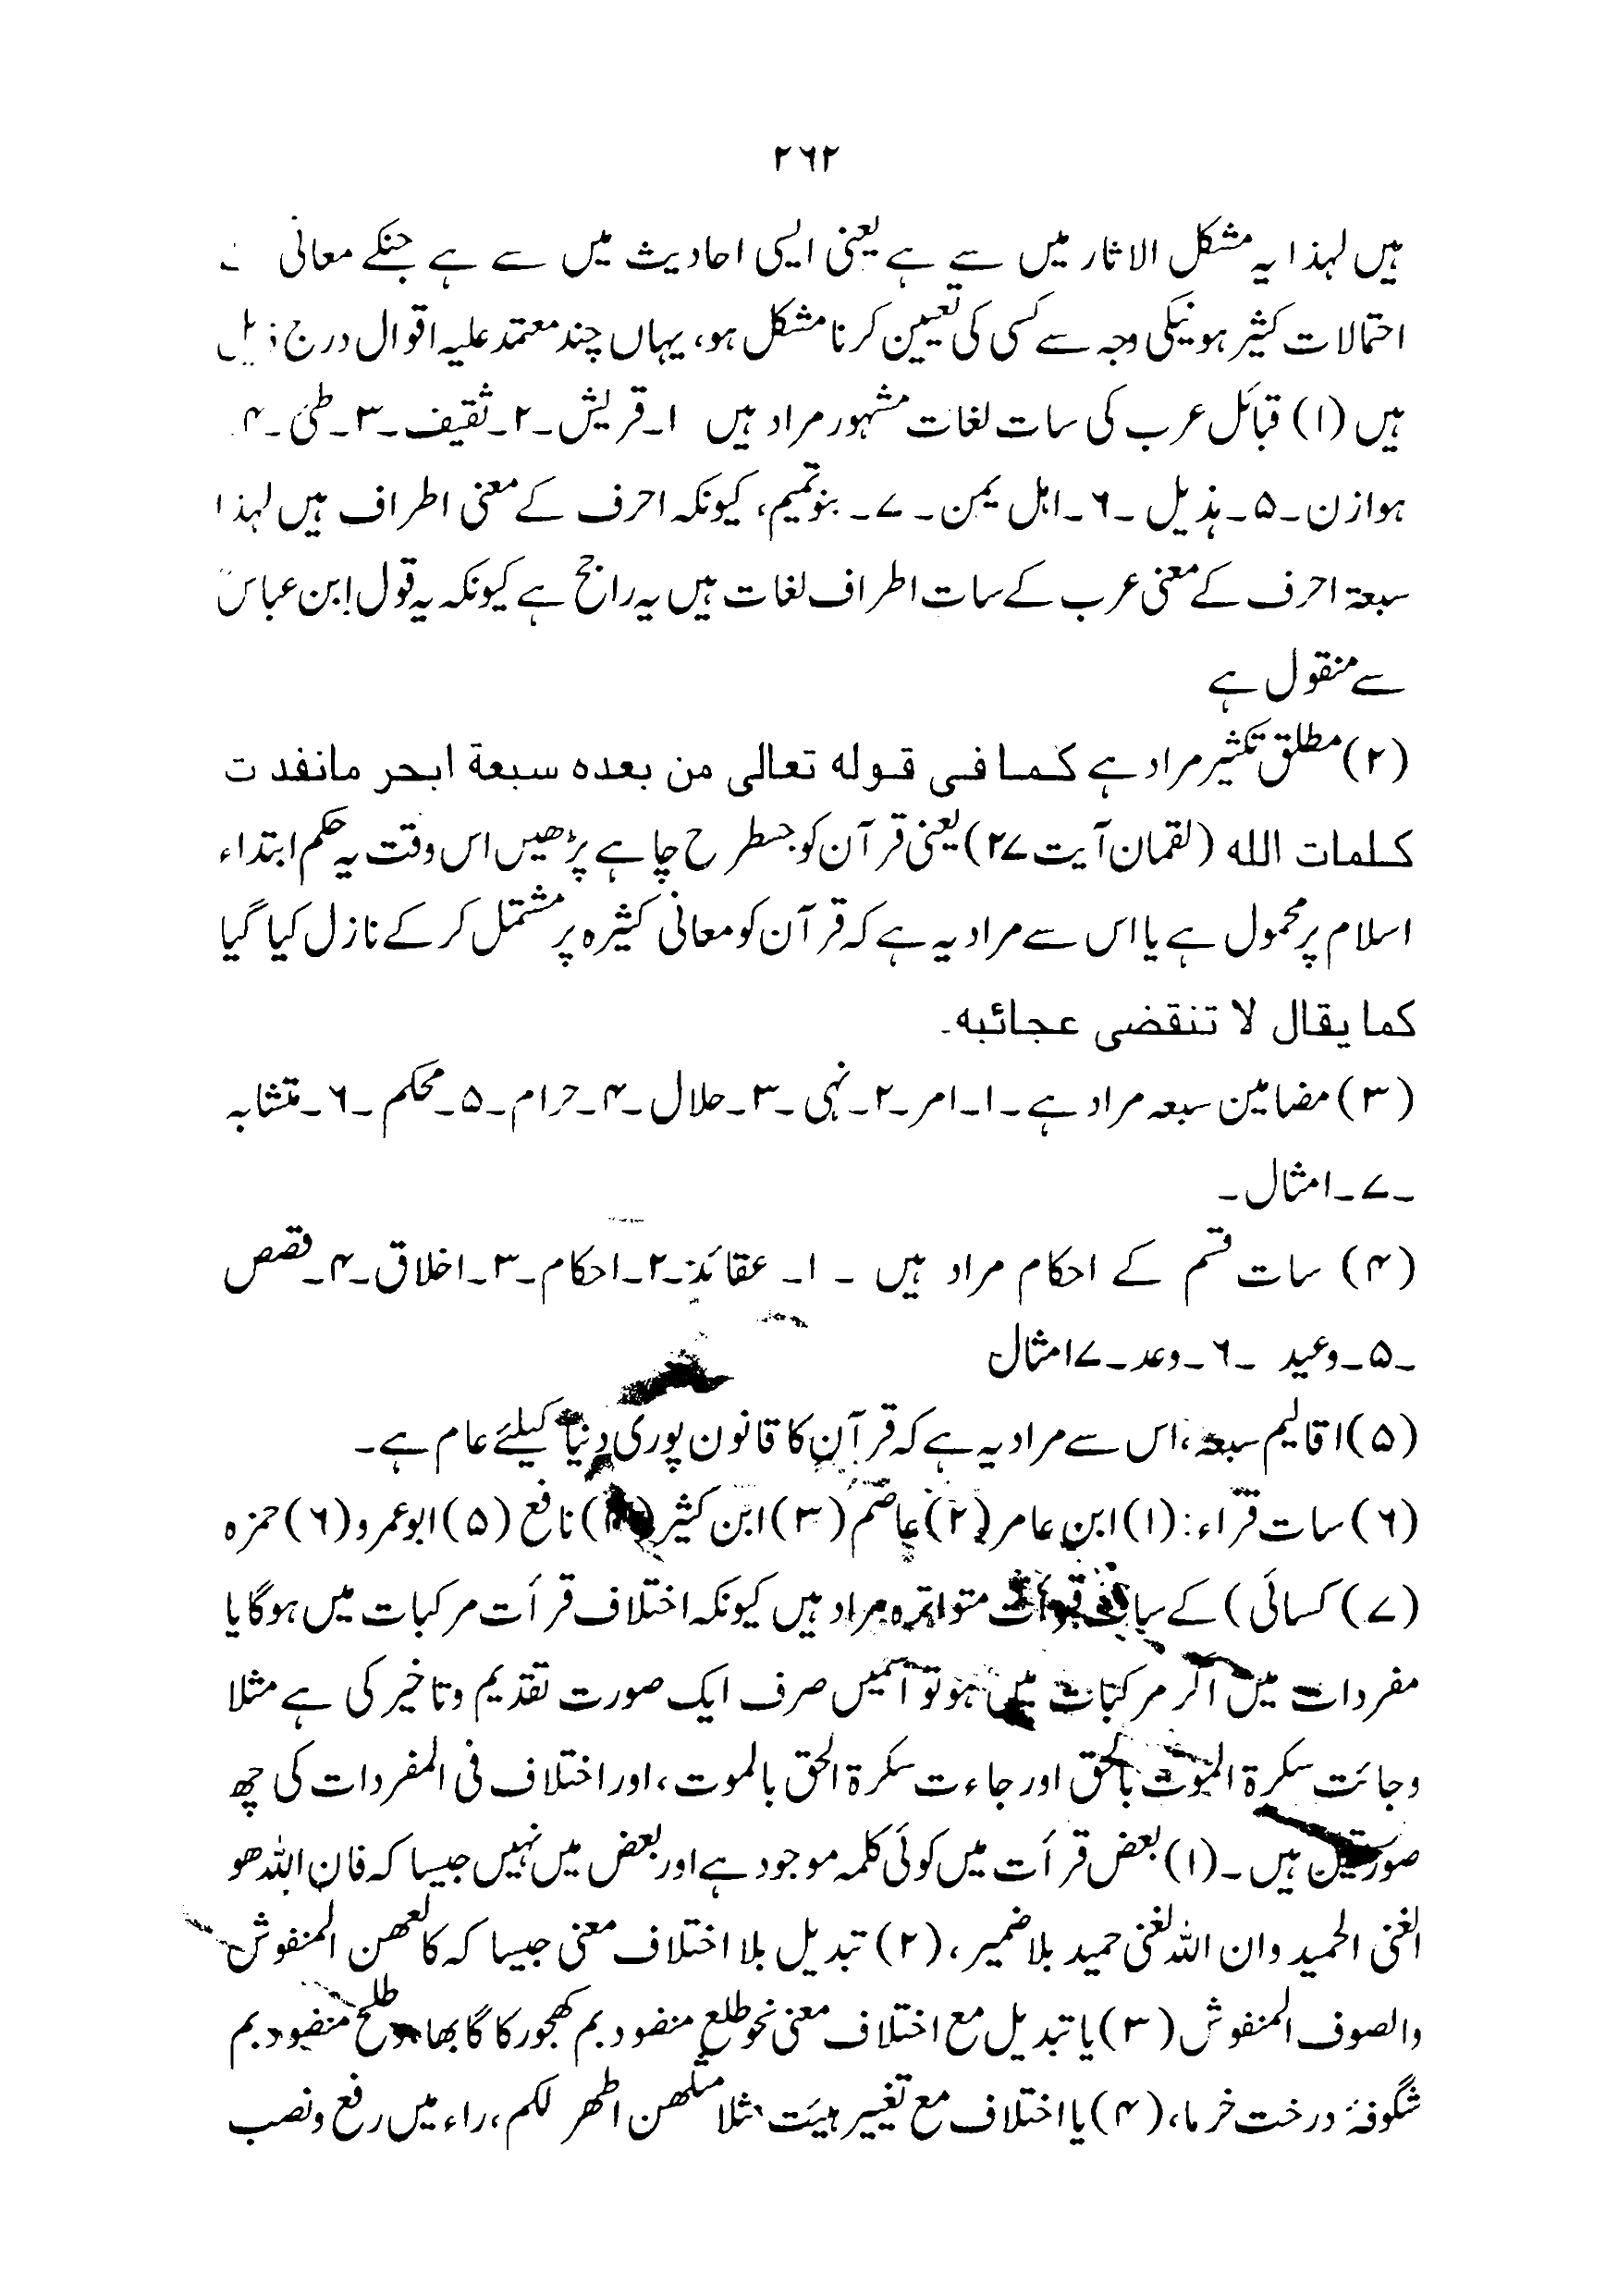 ۲۶۲
ہیں لہذا یہ مشکل الاثار میں سے ہے یعنی ایسی احادیث میں سے ہے جنکے معانی
احتمالات کثیر ہونیکی وجہ سے کسی کی تعیین کرنا مشکل ہو، یہاں چند معتمد علیہ اقوال درج ذیل
ہیں (۱) قبائل عرب کی سات لغات مشہور مراد ہیں ۱۔قریش۔۲۔ثقیف۔۳۔طئ۔۴۔
ہوازن۔۵۔ہذیل۔۶۔اہل یمن۔۷۔ بنو تمیم، کیونکہ احرف کے معنی اطراف ہیں لہذا
سبعۃ احرف کے معنی عرب کے سات اطراف لغات ہیں یہ راجح ہے کیونکہ یہ قول ابن عباسؓ
سے منقول ہے
(۲) مطلق تکثیر مراد ہے کما فی قوله تعالی من بعده سبعة ابحر مانفدت
کلمات الله (لقمان آیت ۲۷) یعنی قرآن کو جسطرح چاہے پڑھیں اس وقت یہ حکم ابتداء
اسلام پر محمول ہے یا اس سے مراد یہ ہے کہ قرآن کو معانی کثیرہ پر مشتمل کر کے نازل کیا گیا
کما یقال لا تنقضی عجائبه۔
(۳) مضامین سبعہ مراد ہے۔۱۔امر۔۲۔نہی۔۳۔حلال۔۴۔حرام۔۵۔محکم۔۶۔متشابہ
۔۷۔امثال۔
(۴) سات قسم کے احکام مراد ہیں ۔ ۱۔ عقائد۔۲۔احکام۔۳۔اخلاق۔۴۔قصص
۔۵۔وعید ۔۶۔وعد۔۷امثال
(۵) اقالیم سبعہ، اس سے مراد یہ ہے کہ قرآن کا قانون پوری دنیا کیلئے عام ہے۔
(۶) سات قرّاء: (۱) ابن عامر (۲) عاصم (۳) ابن کثیر (۴) نافع (۵) ابوعمرو (۶) حمزہ
(۷) کسائی) کے سات قرأت متواترہ مراد ہیں کیونکہ اختلاف قرأت مرکبات میں ہوگا یا
مفردات میں اگر مرکبات میں ہو تو اسمیں صرف ایک صورت تقدیم وتاخیر کی ہے مثلا
وجائت سکرة الموت بالحق اور جاءت سکرة الحق بالموت، اور اختلاف فی المفردات کی چھ
صورتیں ہیں۔ (۱) بعض قرأت میں کوئی کلمہ موجود ہے اور بعض میں نہیں جیسا کہ فان اللہ ھو
الغنی الحمید وان اللہ لغنی حمید بلا ضمیر، (۲) تبدیل بلا اختلاف معنی جیسا کہ کالعھن المنفوش
والصوف المنفوش (۳) یا تبدیل مع اختلاف معنی نحو طلع منضود بم کھجور کا گابھا، وطلح منضود بم
شگوفۂ درخت خرما، (۴) یا اختلاف مع تغییر ہیئت مثلا ھن اطھر لکم، راء میں رفع ونصب